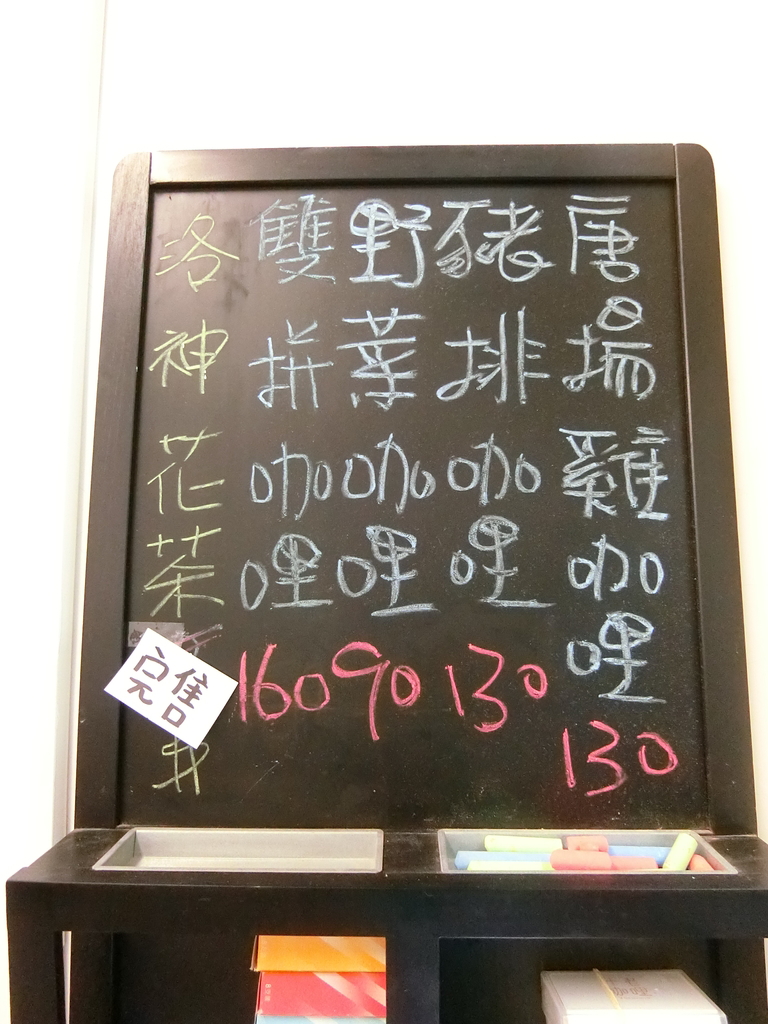 唐揚雞咖哩
130
豬排咖哩
130
野菜咖哩
90
雙拼咖哩
160
洛神花茶
完售